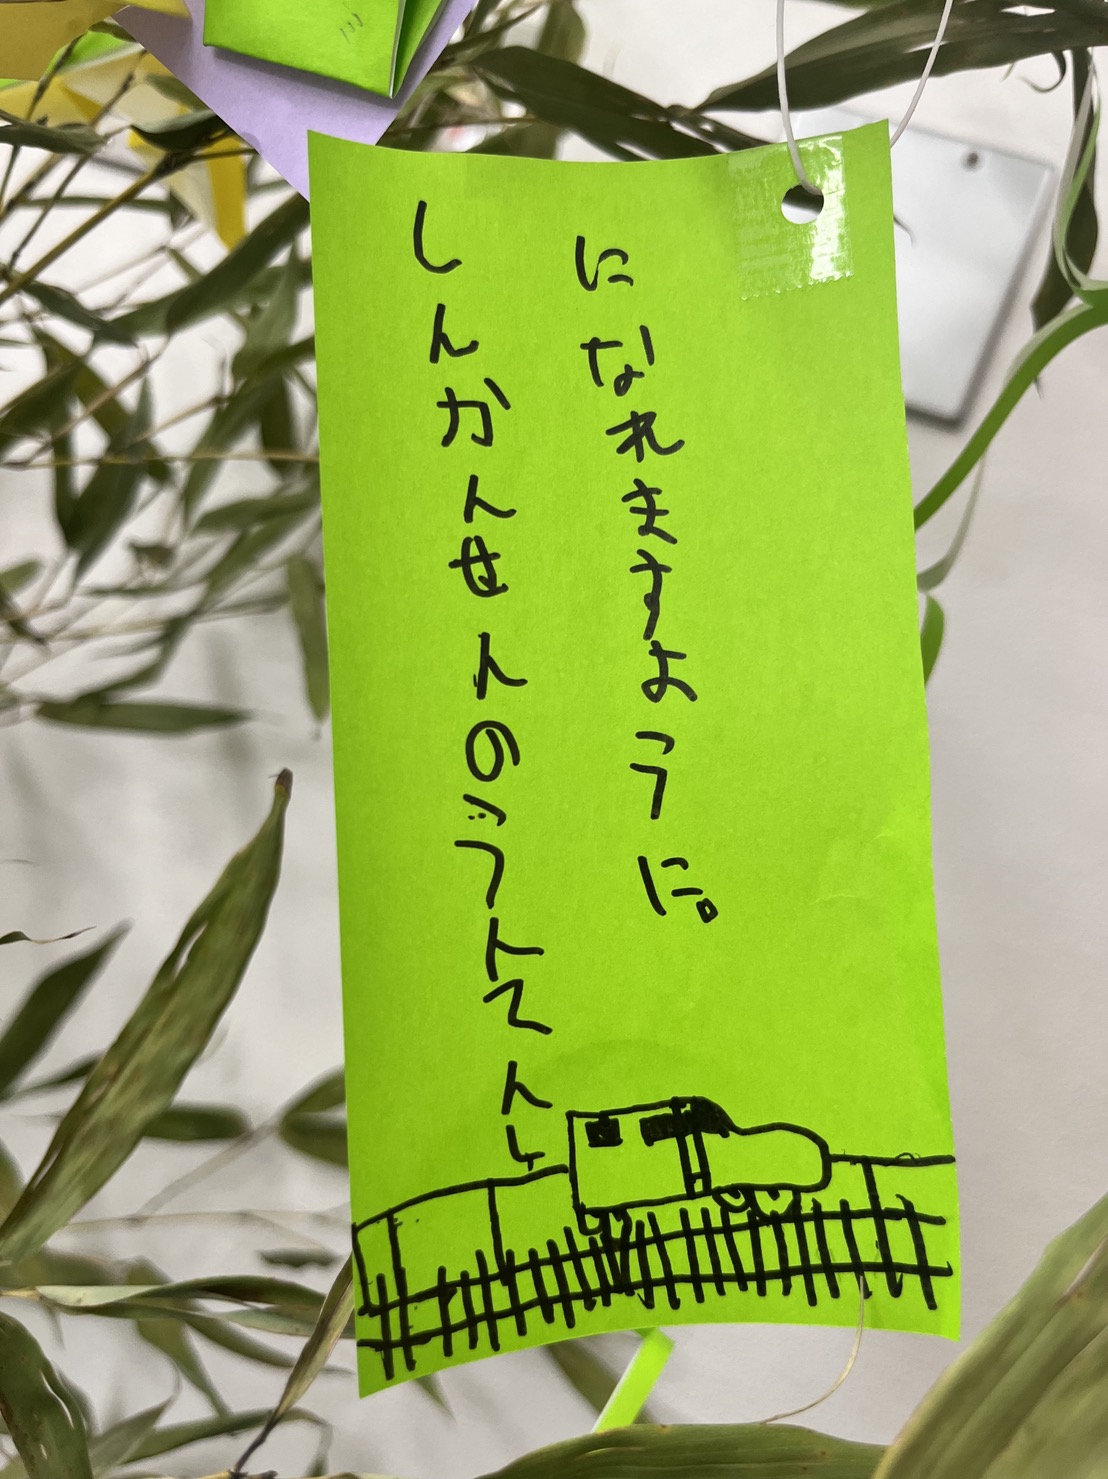 しんかんせんのうんてんし
になれますように。